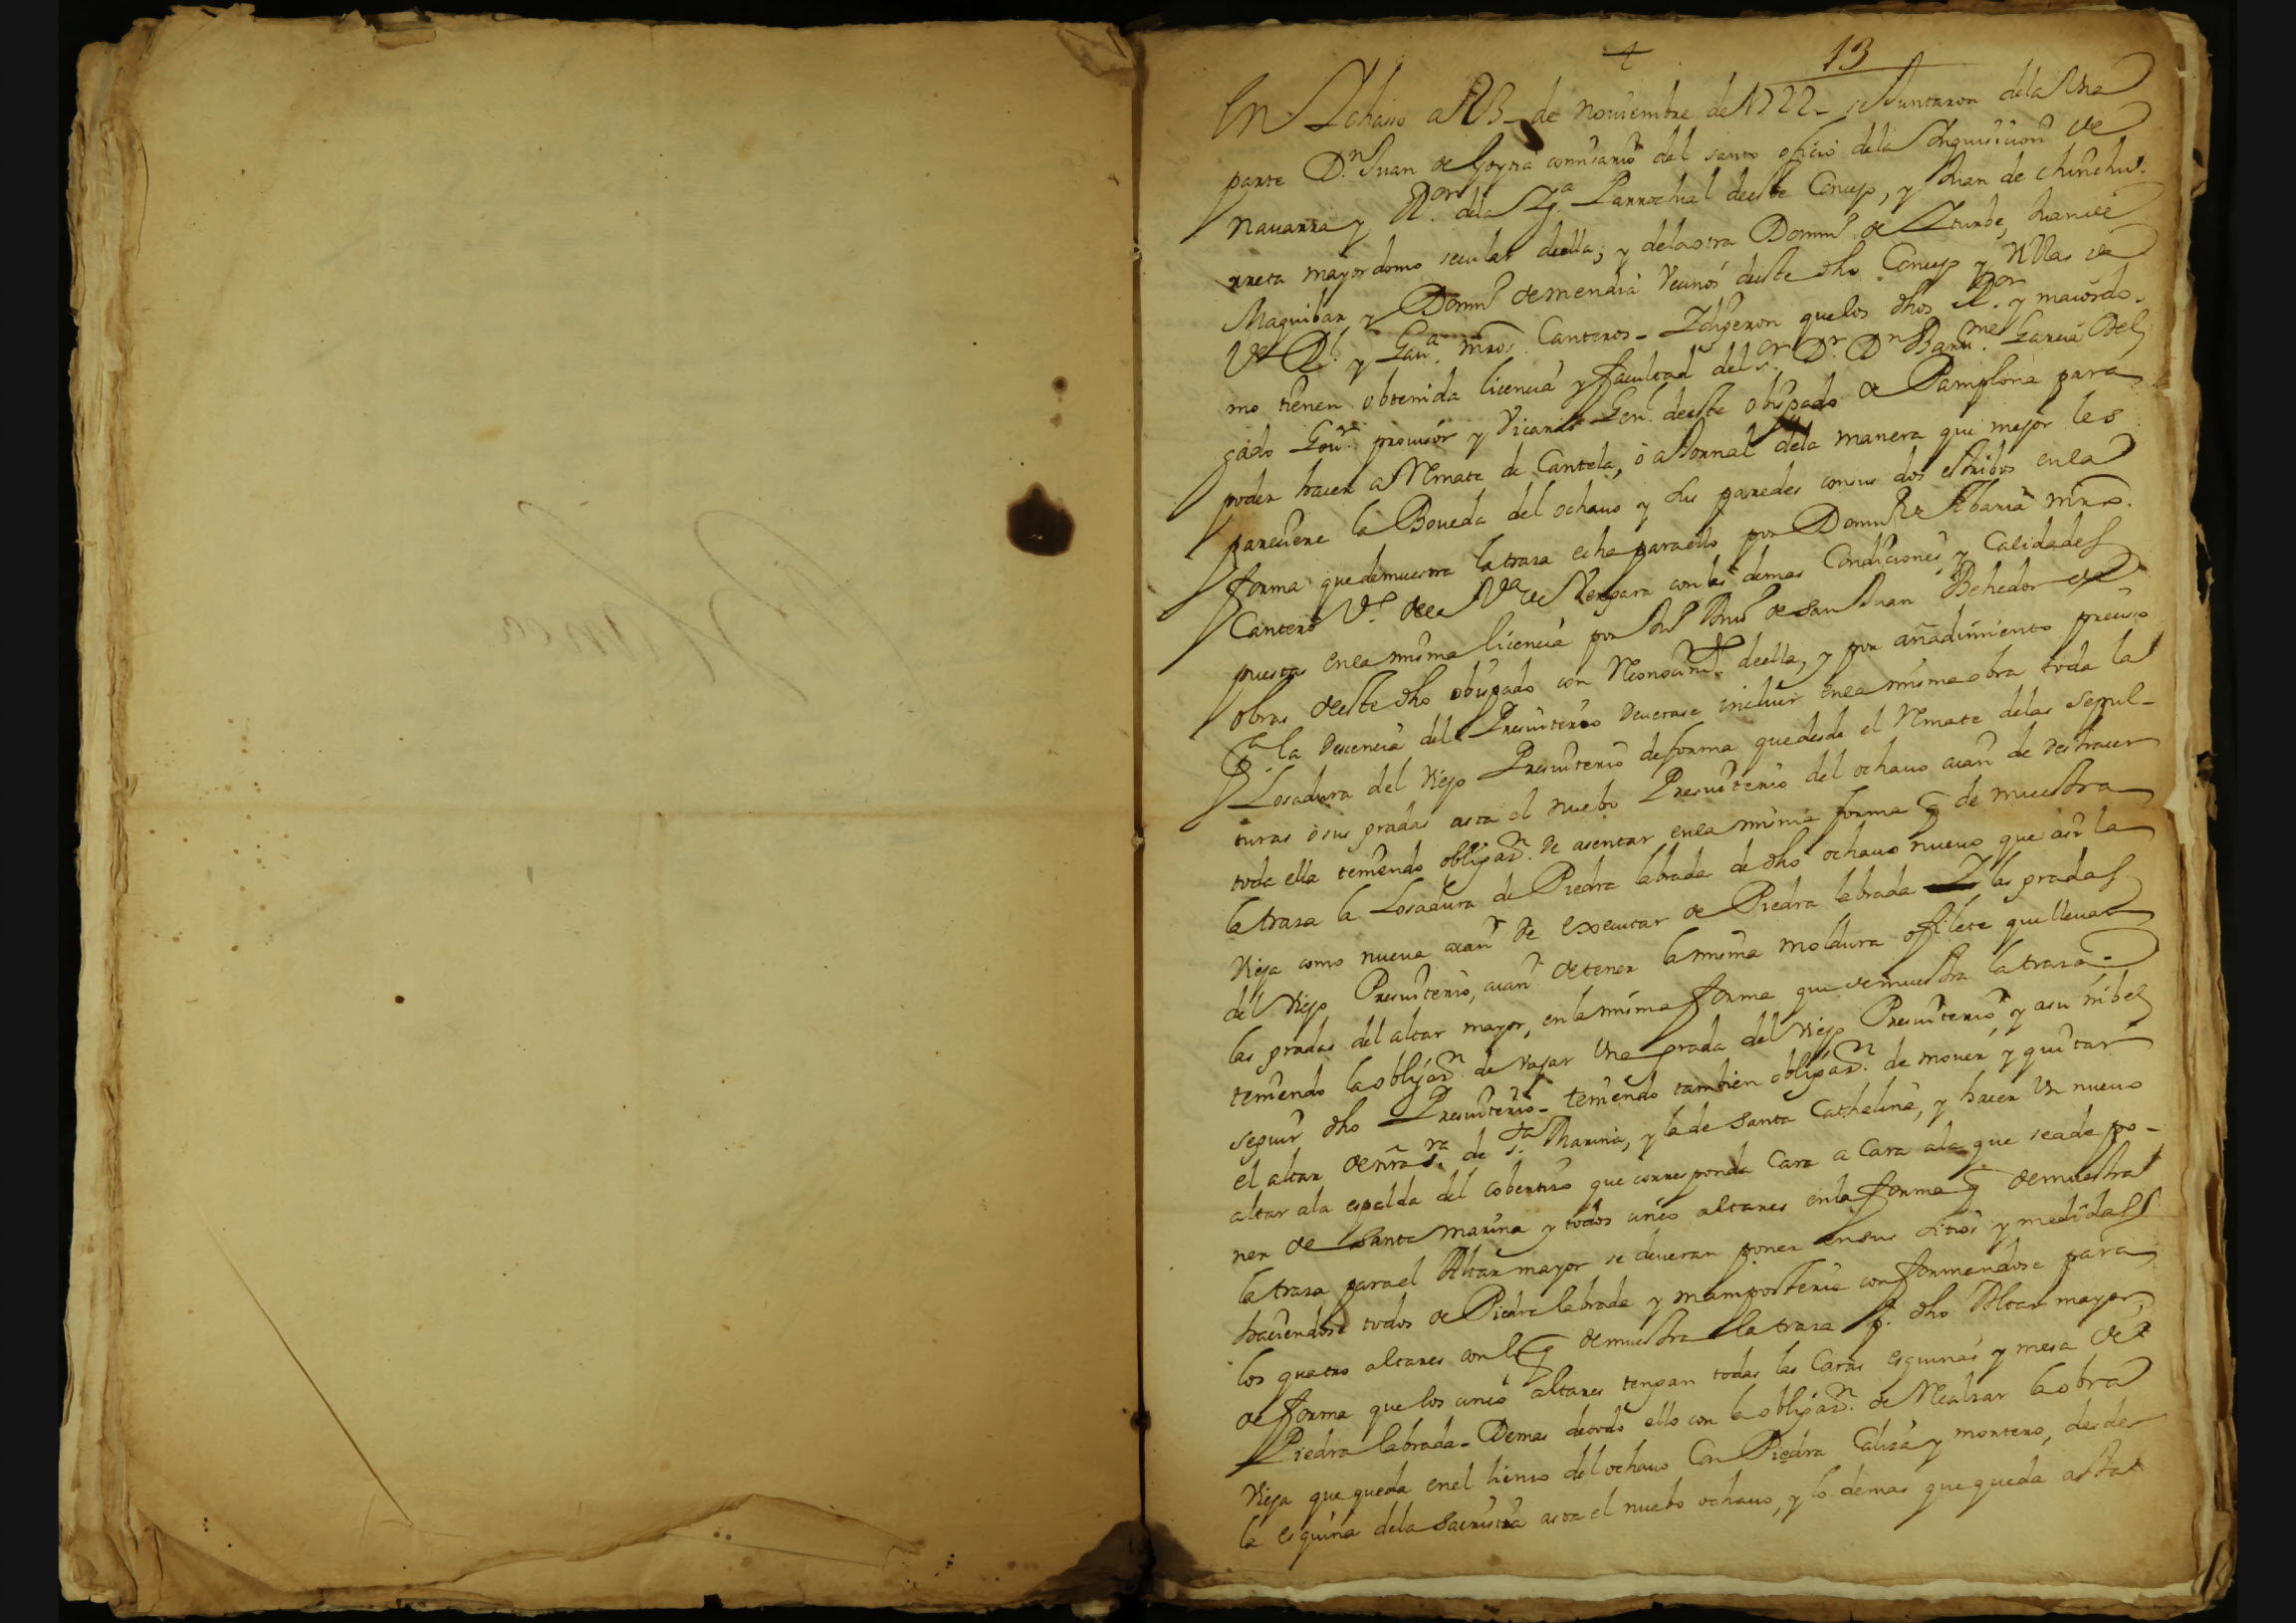 13
En Ichaso a 13 de nouiembre de 1722 se Juntaron dela Una
parte Dn. Juan de Goyna comisario del santo oficio dela Inquisicion de
nauarra y Ror. dela Yga. Parrochial deeste Concejo, y Juan de chinchu-
rreta mayordomo secular deella; y dela otra Domin. de Yturbe, Juan de
Maguibar y Domin. de mendia Vecinos deeste dho Concejo y Villas de
y Gaua. mros. Canteros - I dixeron que los dhos Ror. y maiordo-
mo tienen obtenida licencia y facultad del sor. Dr. Dn. Barme. Garcia Del
gado Gour. prouisor y Vicario Gen. deeste obispado de Pamplona para
poder hacer a Remate de Candela, ò a Jornal dela manera que mejor les
pareciere la Boueda del ochauo y sus paredes con sus dos estribos en la
forma que demuestra la traza echa para ello por Domin. de Abaria mro.
Cantero Vo. dela Va. de Segura con las demas Condiciones y Calidades
puestas en la misma licencia por Jn. Anto. de San Juan Behedor de
obras deeste dho obispado con Reconocimto. deella, y por añadimiento preciso
pa. la Decencia del Presuiterio deuerase incluir en la misma obra toda la
Losadura del Viejo Presuiterio de forma que desde el Remate delas sepul-
turas ò sus gradas asta el nuebo Presuiterio del ochauo aian de deshacer
toda ella teniendo obligazn. de asentar en la misma forma q de muestra
la traza la Losadura de Piedra labrada de dho ochauo nueuo que asi la
Vieja como nueua aian de Executar de Piedra labrada las gradas
del Viejo Presuiterio, aian de tener la misma moldura o filete que lleuan
las gradas del altar mayor, en la misma forma que demuestra la traza.
teniendo la obligazn. de vajar Una grada del Viejo Presuiterio y a su nibel
seguir dho Presuiterio - teniendo tambien obligazn. de mouer y quitar
el altar de nra sra. de sta. Marina, y la de Santa Cathelina, y hacer Un nueuo
altar ala espalda del cobertizo que corresponda Cara a Cara ala que se a de po-
ner de Santa Marina y todos cinco altares en la forma q demuestra
la traza para el Altar mayor se deueran poner en sus sitios y medidas
haciendose todos de Piedra labrada y mamposteria conformandose para
los quatro altares con lo q demuestra la traza p. dho Altar mayor,
de forma que los cinco altares tengan todas las Caras esquinas y mesa de
Piedra labrada - Demas de todo ello con la obligazn. de Realzar la obra
Vieja que queda en el lienzo del ochauo Con Piedra Caliza y mortero, desde
la esquina dela Sacristia asta el nuebo ochauo, y lo demas que queda asta